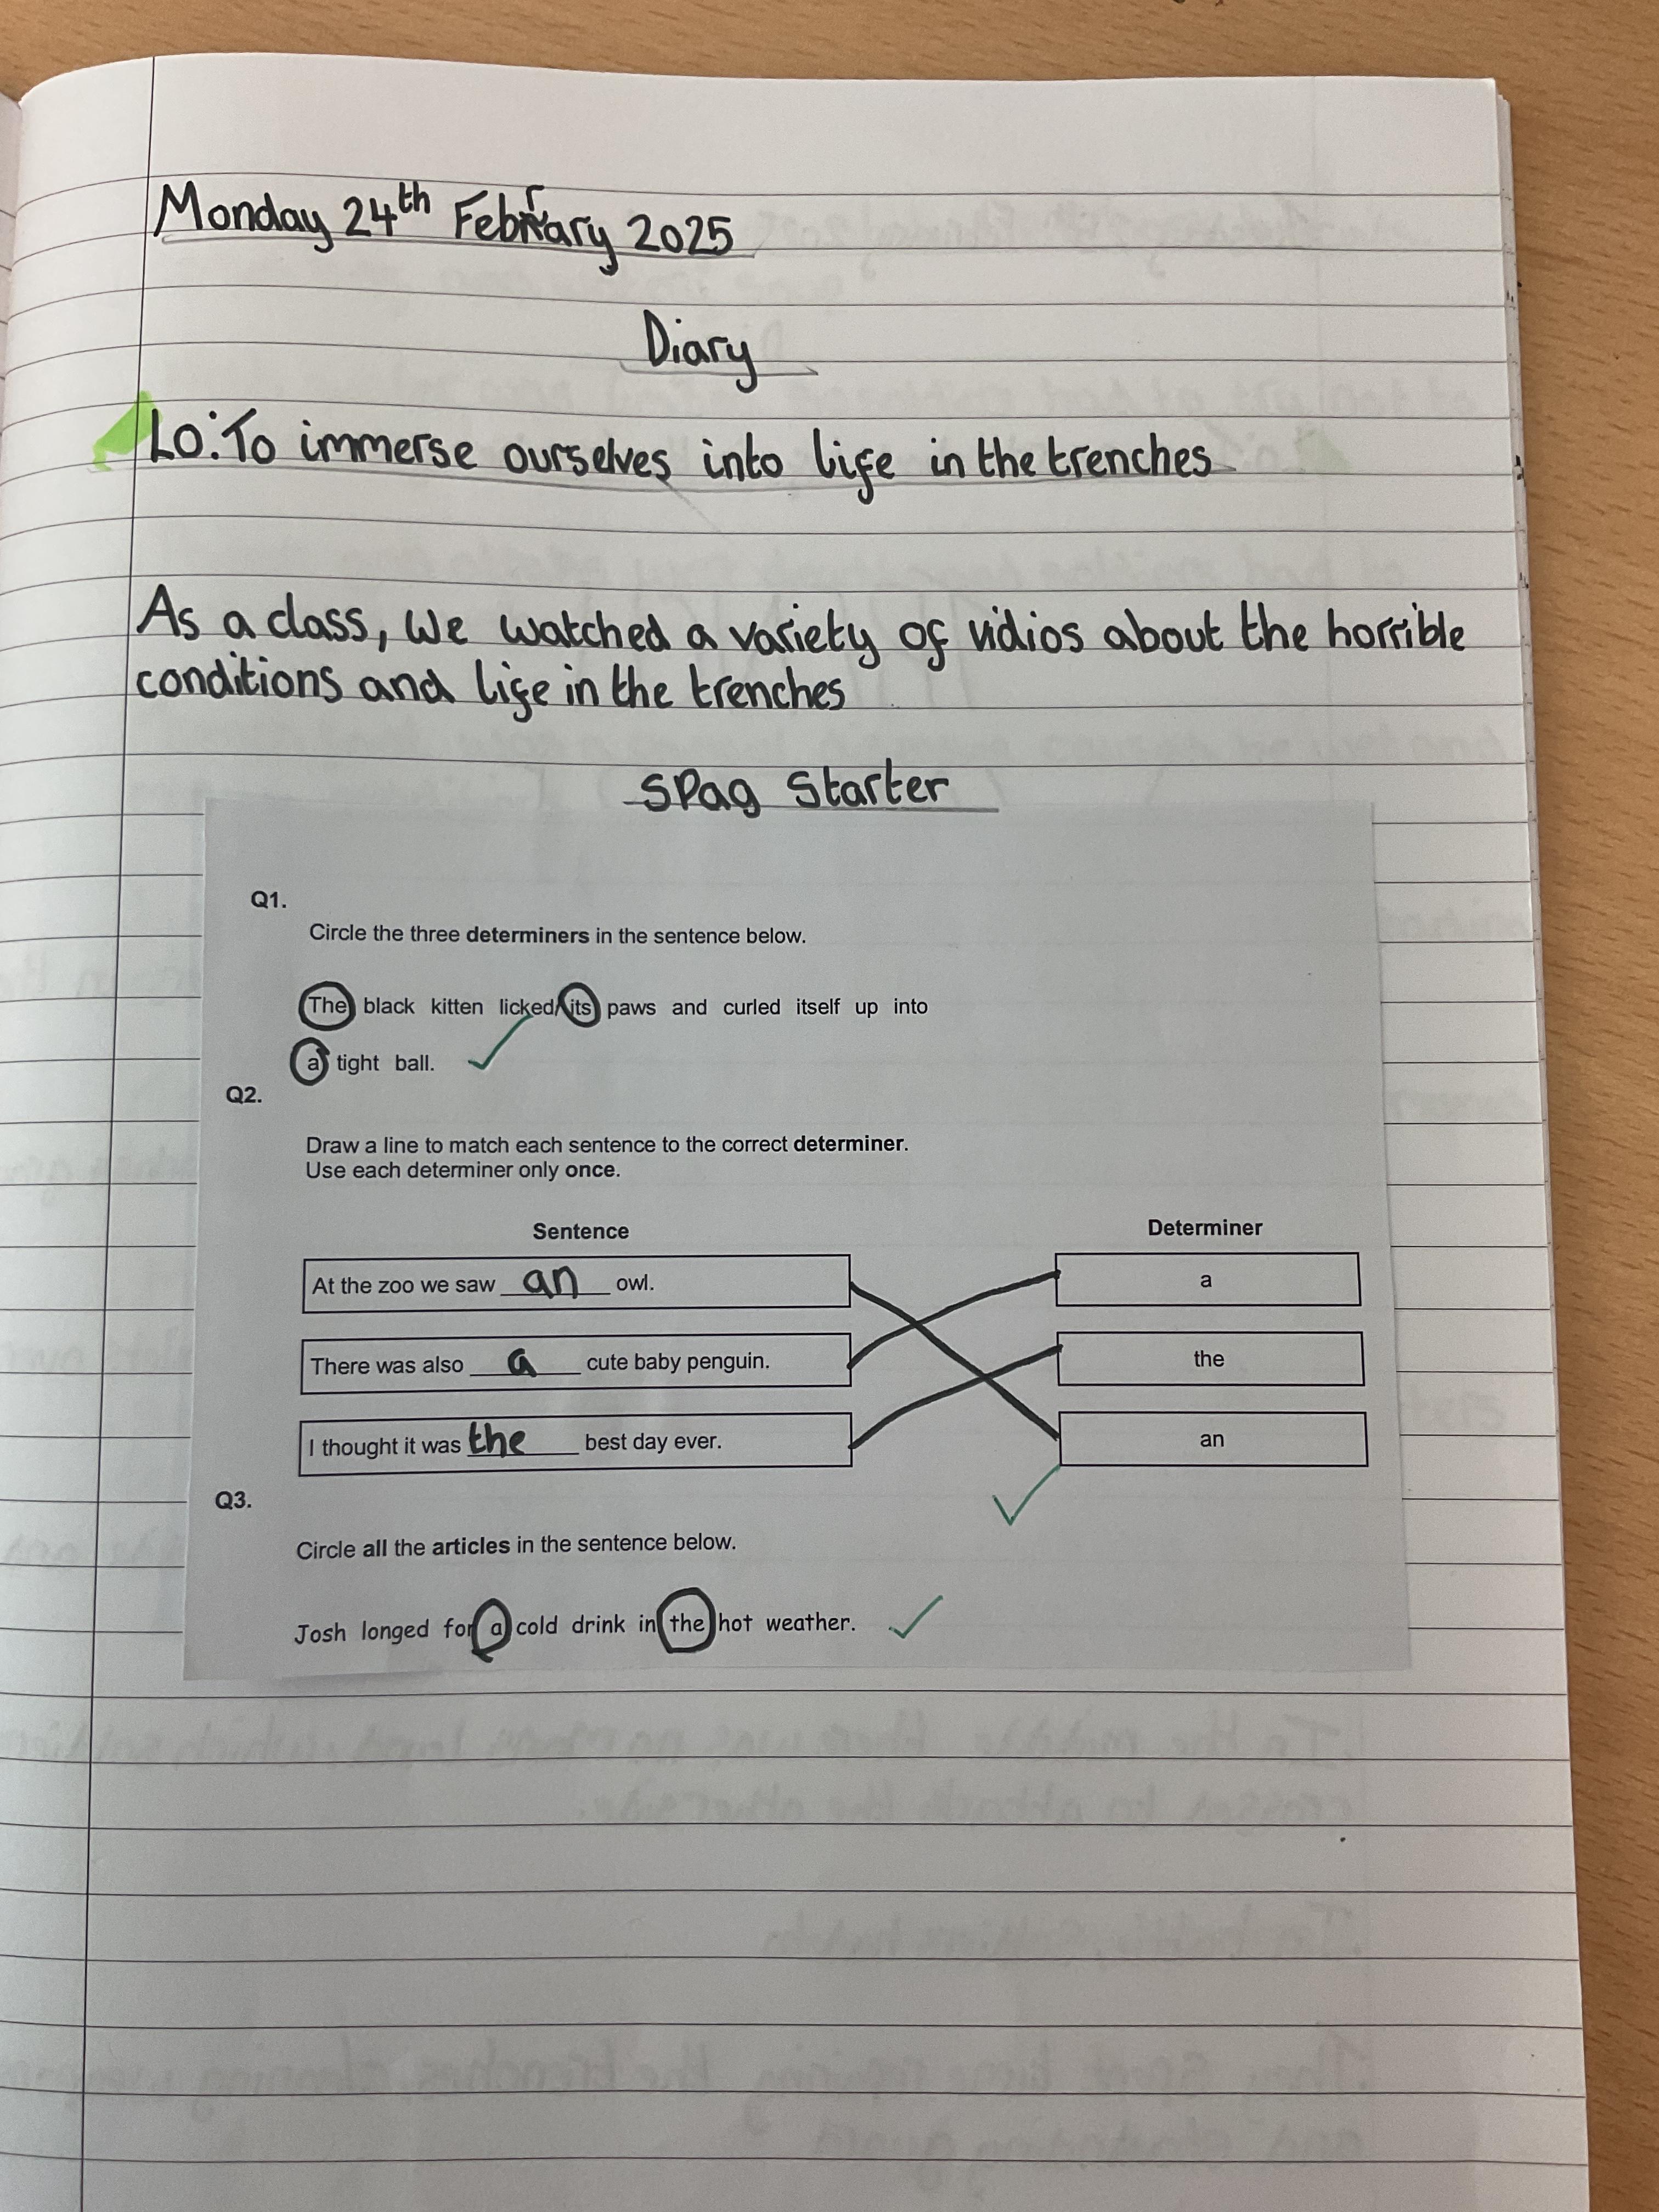 Monday 24th February 2025
Diary
LO: To immerse ourselves into life in the trenches
As a class, we watched a variety of vidios about the horrible
conditions and life in the trenches
SPag Starter
Q1.
Circle the three determiners in the sentence below.
The black kitten licked its paws and curled itself up into
a tight ball.
Q2.
Draw a line to match each sentence to the correct determiner.
Use each determiner only once.
Sentence Determiner
At the zoo we saw an owl. a
There was also a cute baby penguin. the
I thought it was the best day ever. an
Q3.
Circle all the articles in the sentence below.
Josh longed for a cold drink in the hot weather.